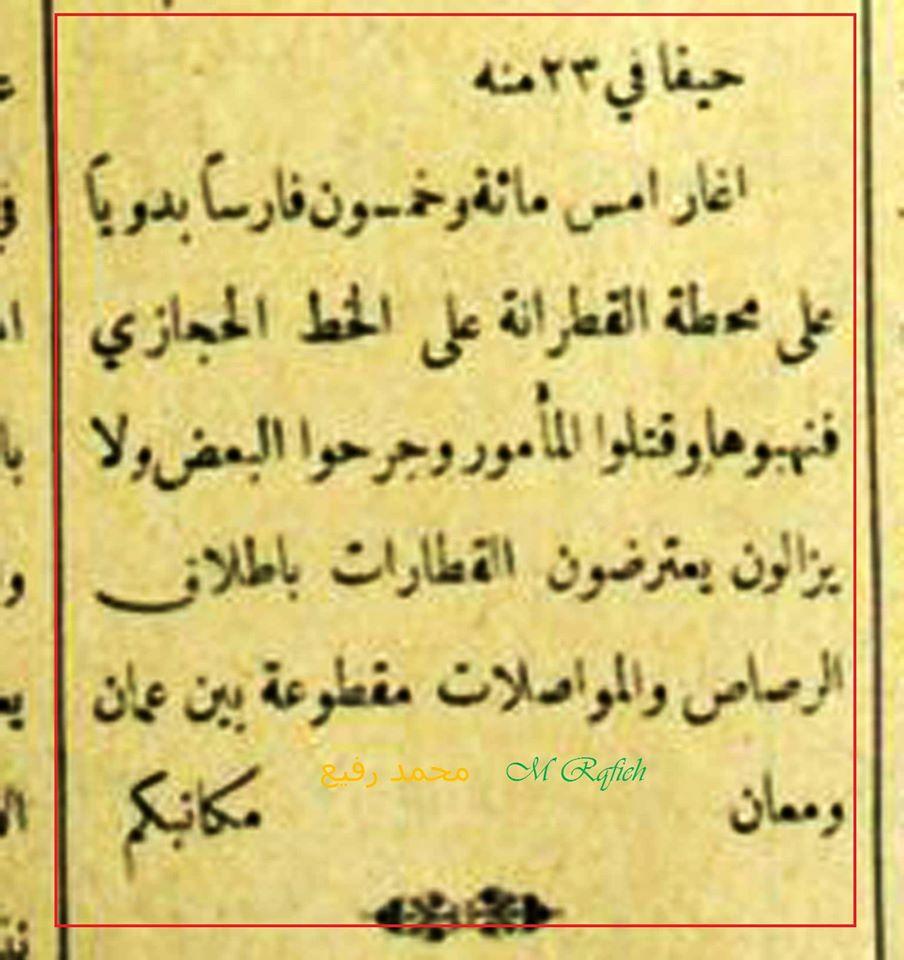 حيفا في ٢٣ منه
اغار امس مائة وخمسون فارساً بدوياً
على محطة القطرانة على الخط الحجازي
فنهبوها وقتلوا المأمور وجرحوا البعض ولا
يزالون يعترضون القطارات باطلاق
الرصاص والمواصلات مقطوعة بين عمان
محمد رفيع M Rafieh
ومعان مكاتبكم